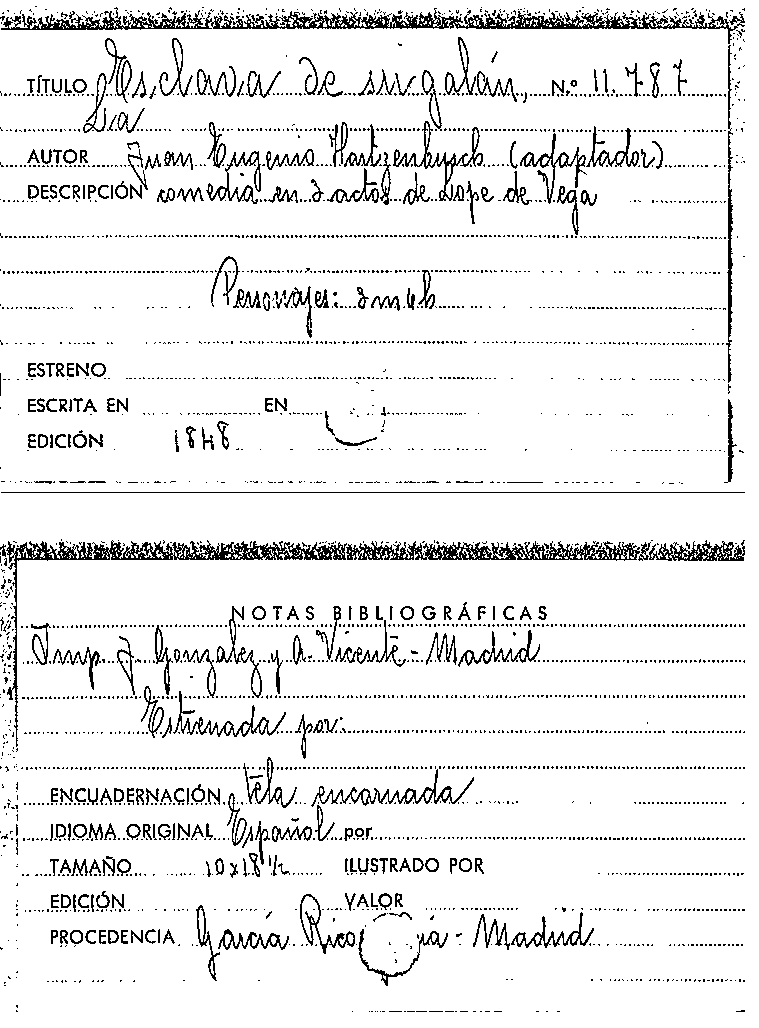 TÍTULO Esclava de su galán, N.º 11.787
La
AUTOR Juan Eugenio Hartzenbusch (adaptador)
DESCRIPCIÓN comedia en 3 actos de Lope de Vega
Personajes: 3 m 4 h
ESTRENO
ESCRITA EN EN
EDICIÓN 1848
NOTAS BIBLIOGRÁFICAS
Imp J. Gonzalez y A. Vicente - Madrid
Estrenada por:
ENCUADERNACIÓN tela encarnada
IDIOMA ORIGINAL Español por
TAMAÑO 10x18 1/2 ILUSTRADO POR
EDICIÓN VALOR
PROCEDENCIA García Rico - Madrid